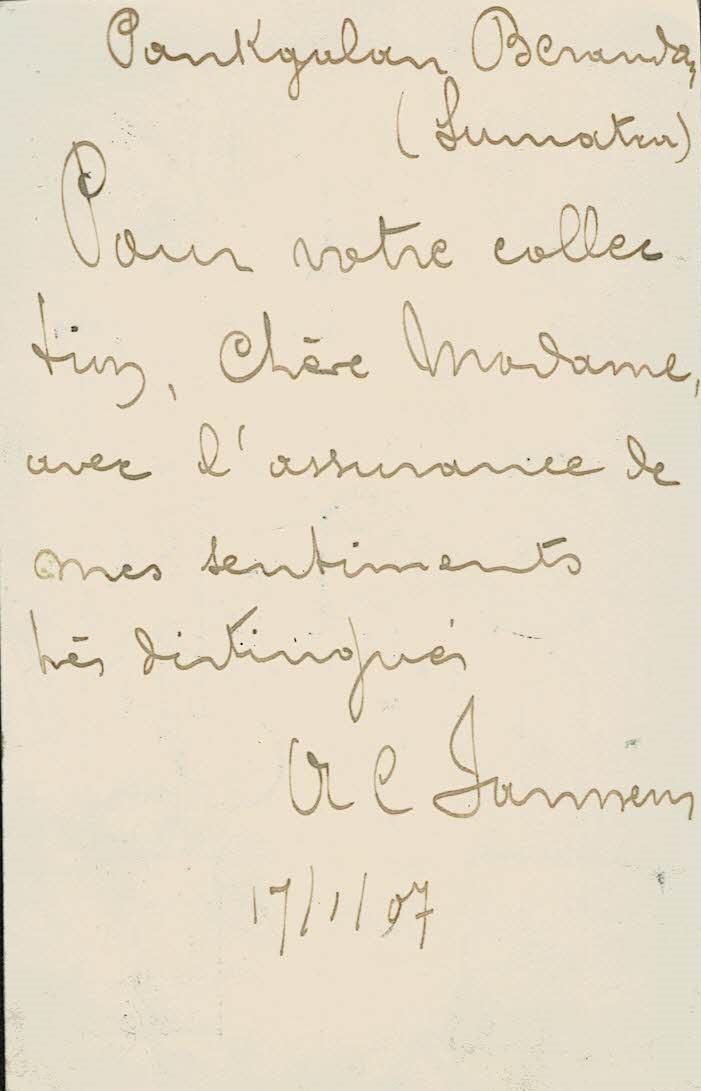 Pankgalan Beranda,
(Sumatra)
Pour votre collec
tion, Chère Madame,
avec l'assurance de
mes sentiments
très distingués
A C Janssens
17/1/07